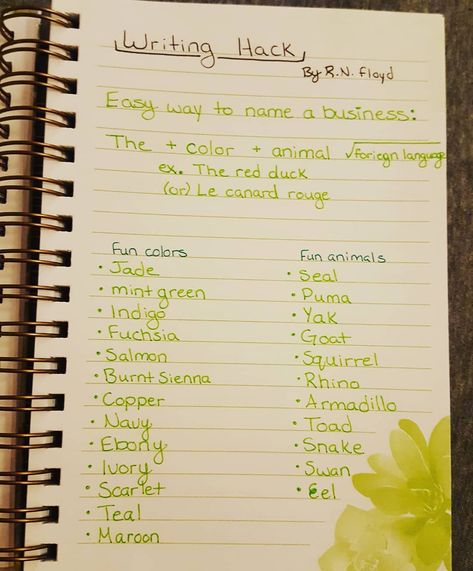 Writing Hack
By R.N. Floyd
Easy way to name a business:
The + color + animal √foriegn language
ex. The red duck
(or) Le canard rouge
Fun colors
• Jade
• mint green
• Indigo
• Fuchsia
• Salmon
• Burnt Sienna
• Copper
• Navy
• Ebony
• Ivory
• Scarlet
• Teal
• Maroon
Fun animals
• Seal
• Puma
• Yak
• Goat
• Squirrel
• Rhino
• Armadillo
• Toad
• Snake
• Swan
• Eel